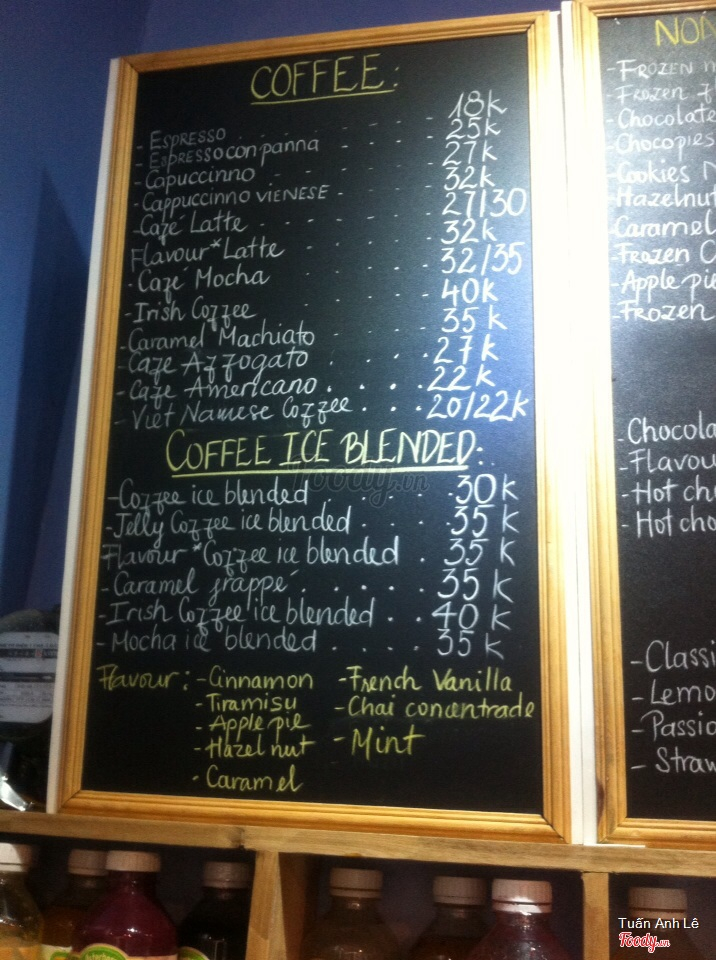 COFFEE:
- Espresso . . . . . . 18k
- Espresso con panna . . . . 25k
- Capuccinno . . . . . 27k
- Cappuccinno VIENESE - - - - 32k
- Café Latte . . . . . 27/30
Flavour*Latte . . . . . 32k
- Café Mocha . . . . . 32/35
- Irish Coffee . . . . . 40k
- Caramel Machiato . . . . 35k
- Cafe Affogato . . . . . 27k
- Cafe Americano . . . . 22k
- Viet Namese Coffee . . . 20/22k
COFFEE ICE BLENDED:
- Coffee ice blended . . . 30k
- Jelly Coffee ice blended . . . 35k
Flavour *Coffee ice blended . 35k
- Caramel frappé . . . . . 35k
- Irish Coffee ice blended . . 40k
- Mocha ice blended . . . . 35k
Flavour: - Cinnamon - French Vanilla
- Tiramisu - Chai concentrade
- Apple pie
- Hazel nut - Mint
- Caramel
NON
- Frozen
- Frozen
- Chocolate
- Chocopies
- Cookies
- Hazelnut
- Caramel
- Frozen C
- Apple pie
- Frozen
- Chocola
- Flavou
- Hot ch
- Hot cho
- Classi
- Lemo
- Passio
- Straw
foody.vn
Tuấn Anh Lê
Foody.vn